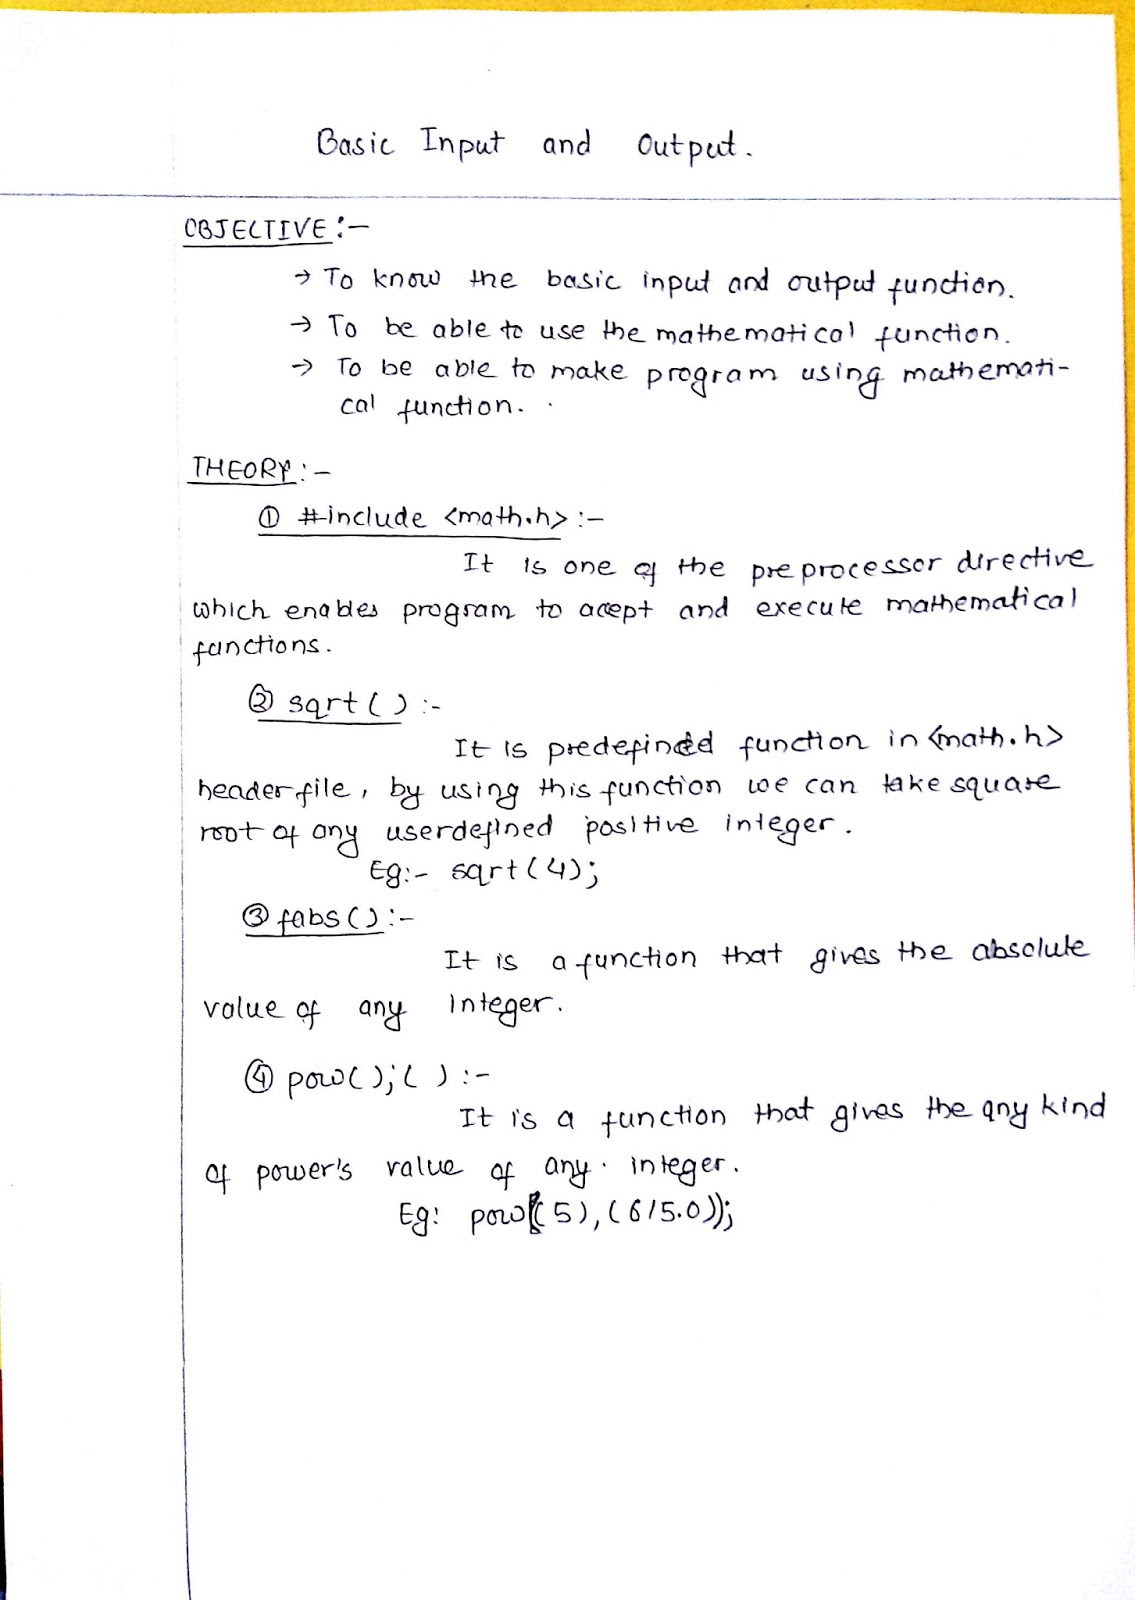 Basic Input and Output.
OBJECTIVE :-
→ To know the basic input and output function.
→ To be able to use the mathematical function.
→ To be able to make program using mathemati-
cal function.
THEORY :-
① #include <math.h> :-
It is one of the preprocessor directive
which enables program to acept and execute mathematical
functions.
② sqrt ( ) :-
It is predefinded function in <math.h>
header file, by using this function we can take square
root of any userdefined positive integer.
Eg:- sqrt (4);
③ fabs ( ) :-
It is a function that gives the absolute
value of any integer.
④ pow( ); ( ) :-
It is a function that gives the any kind
of power's value of any integer.
Eg: pow((5), (6/5.0));